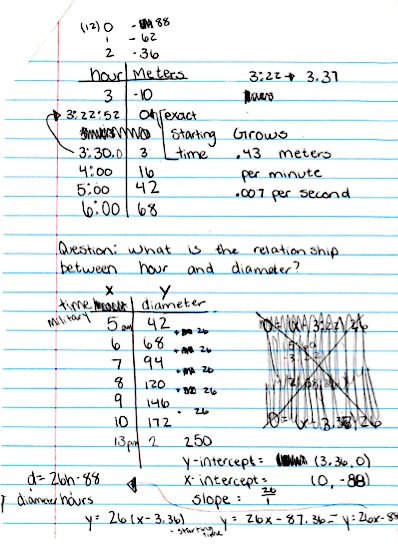 (12) 0 - 88
1 - 62
2 - 36
hour Meters
3 -10
3:22 → 3.37
3:22:52 0 exact
starting Grows
3:30.0 3 time .43 meters
4:00 16 per minute
5:00 42 .007 per second
6:00 68
Question: what is the relationship
between hour and diameter?
x y
time diameter
military
5 am 42
+ 26
6 68
+ 26
7 94
+ 26
8 120
+ 26
9 146
+ 26
10 172
13pm 2 250
y-intercept = (3.36, 0)
x-intercept = (0, -88)
slope = 26/1
d = 26h - 88
diameter hours
y = 26 (x - 3.36) y = 26x - 87.36 = y = 26x - 88
starting time